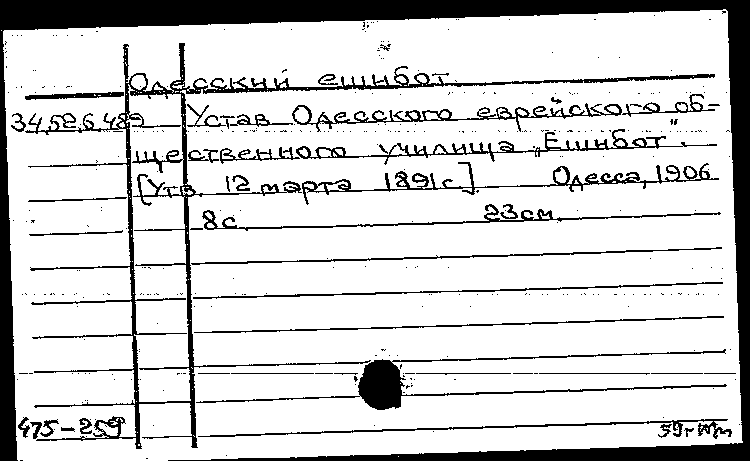 Одесский ешибот.
34.52.6.489 Устав Одесского еврейского об-
щественного училища „Ешибот".
[Утв. 12 марта 1891 г.] Одесса, 1906
8 с. 23 см.
475-259